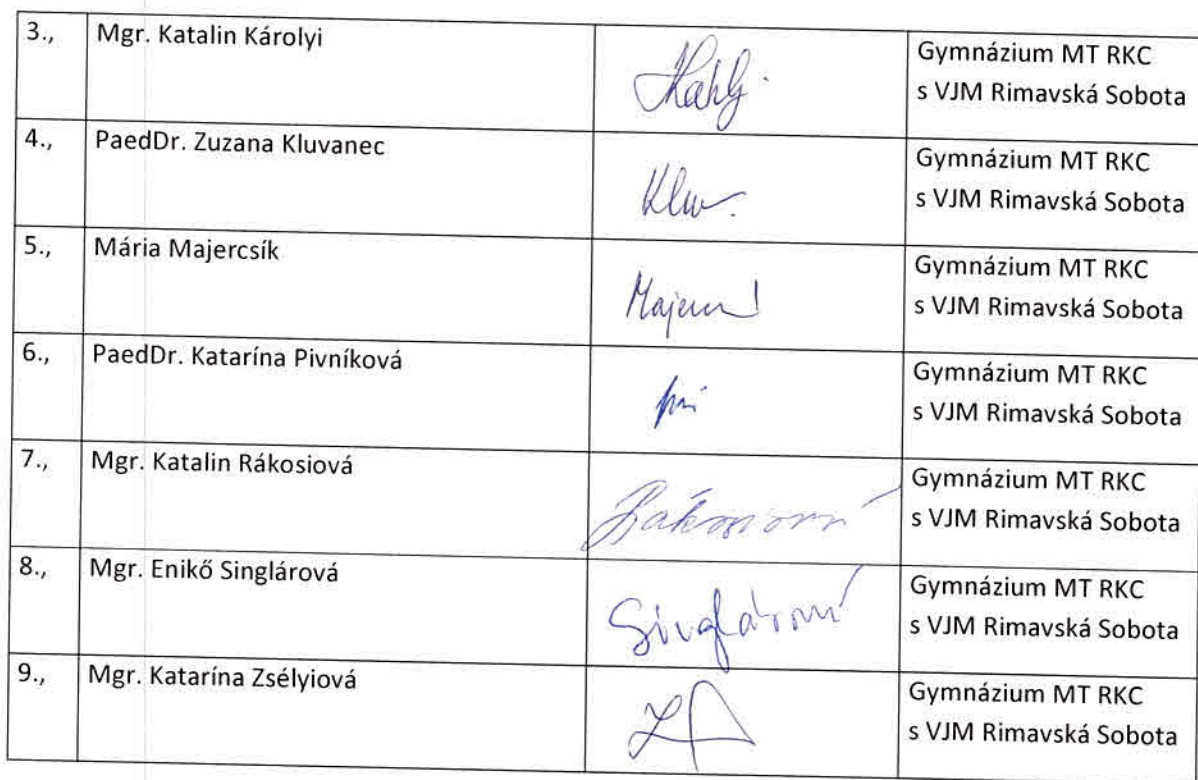 3., Mgr. Katalin Károlyi Gymnázium MT RKC
s VJM Rimavská Sobota
4., PaedDr. Zuzana Kluvanec Gymnázium MT RKC
s VJM Rimavská Sobota
5., Mária Majercsík Gymnázium MT RKC
s VJM Rimavská Sobota
6., PaedDr. Katarína Pivníková Gymnázium MT RKC
s VJM Rimavská Sobota
7., Mgr. Katalin Rákosiová Gymnázium MT RKC
s VJM Rimavská Sobota
8., Mgr. Enikő Singlárová Singlárová Gymnázium MT RKC
s VJM Rimavská Sobota
9., Mgr. Katarína Zsélyiová Gymnázium MT RKC
s VJM Rimavská Sobota